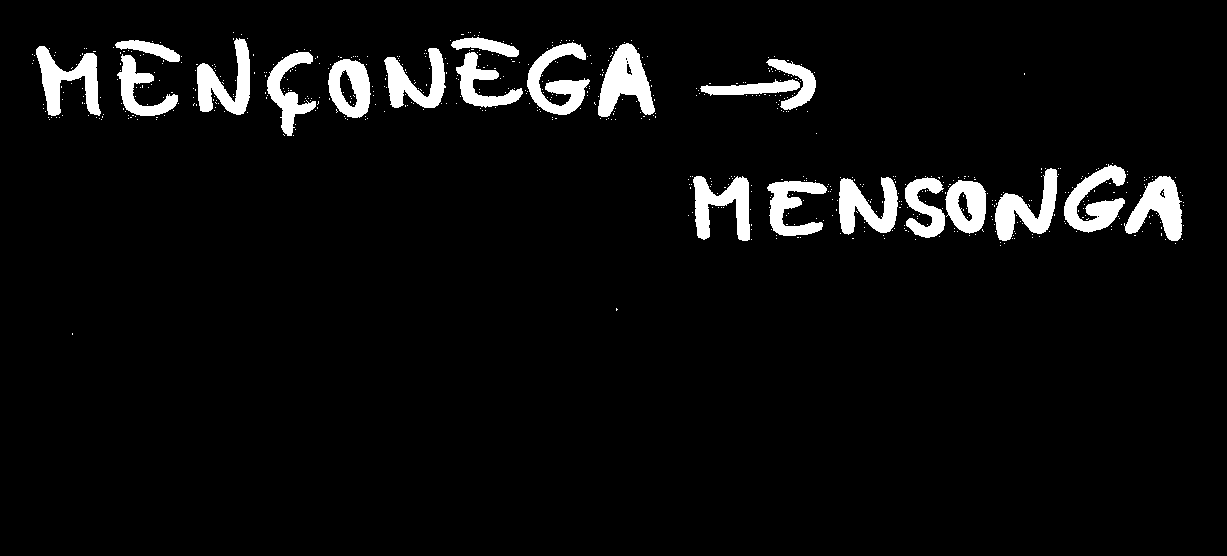 MENÇONEGA →
MENSONGA